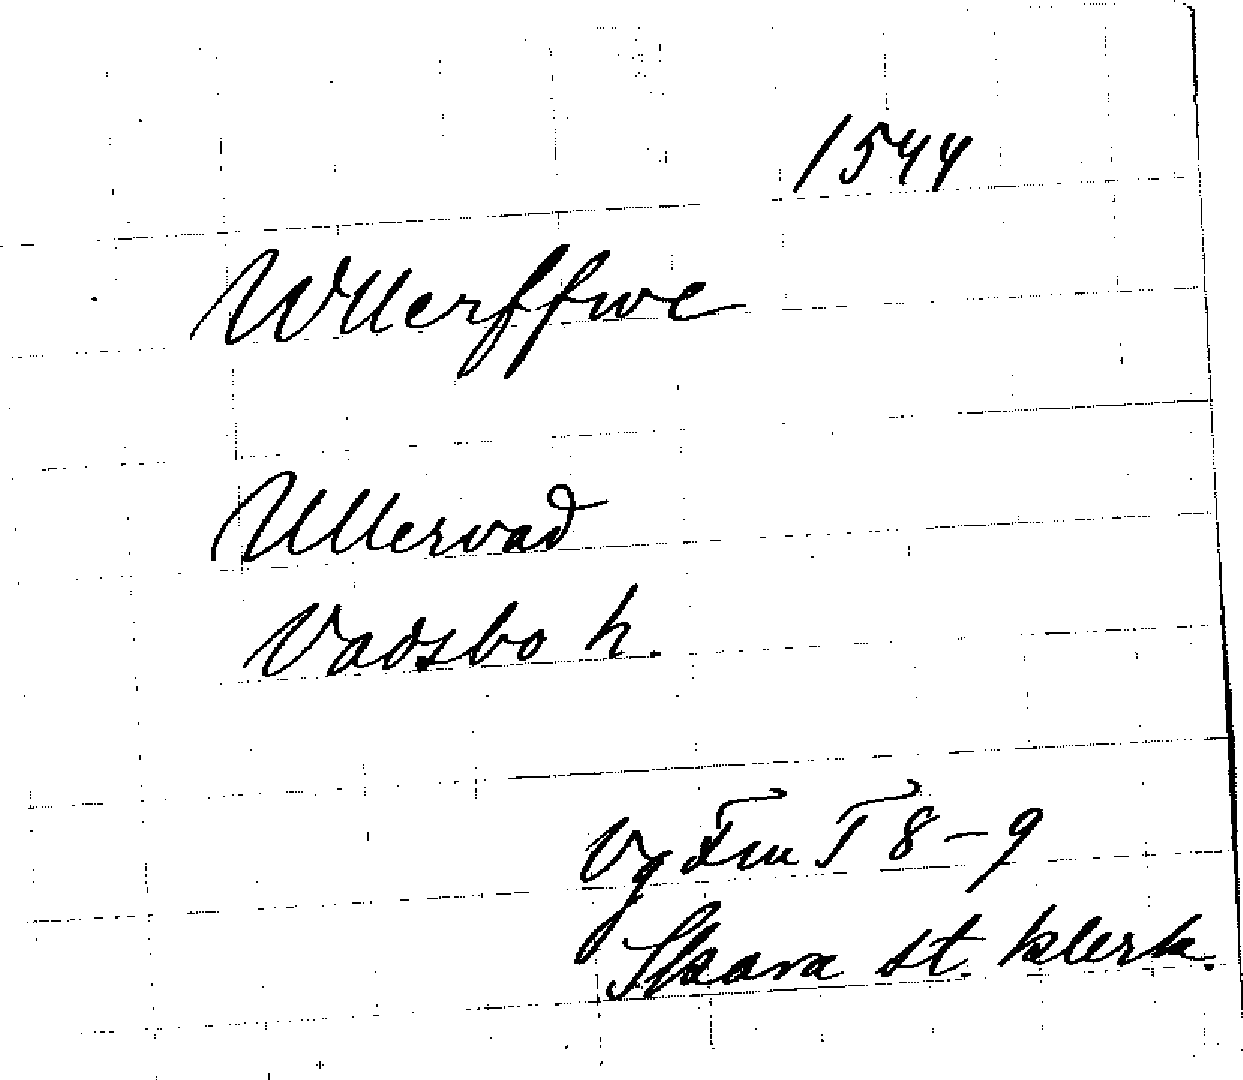 1544
Wllerffwe
Ullervad
Vadsbo h.
Vg Fm T 8-9
Skara st. klerk.